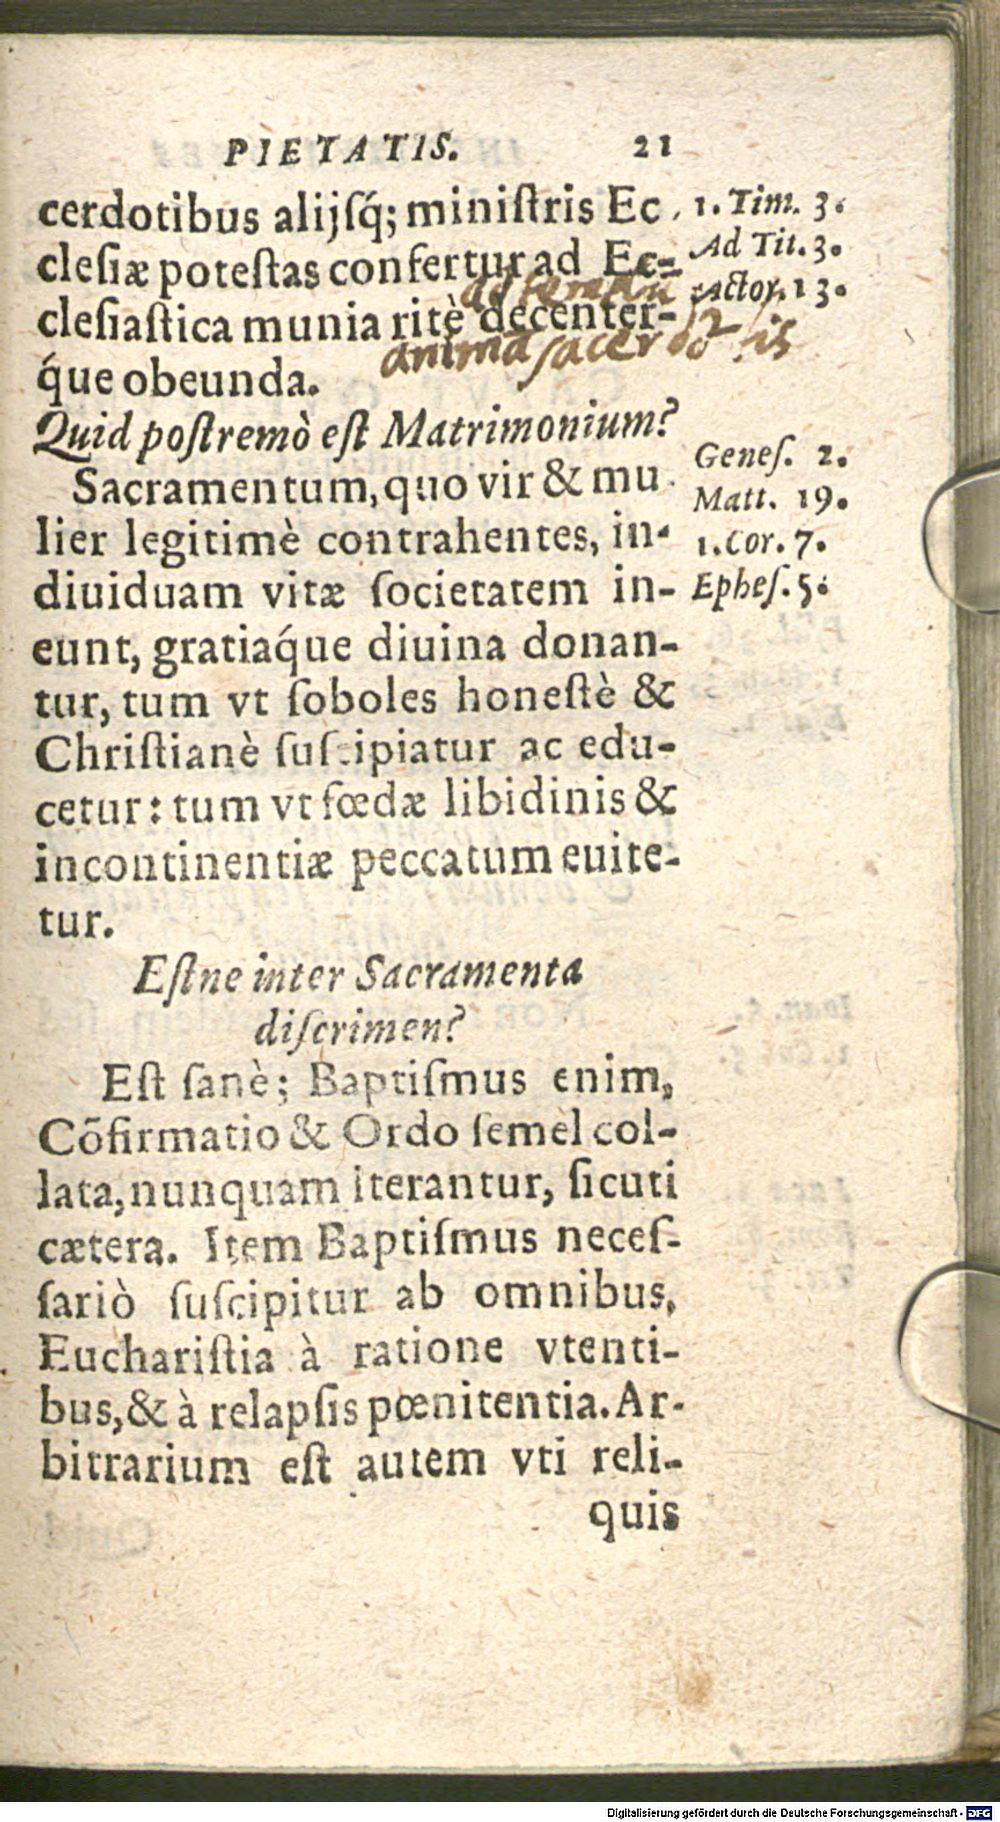 PIETATIS. 21
cerdotibus alijsq́; miniſtris Ec
cleſiæ poteſtas confertur ad Ec-
cleſiaſtica munia ritè decenter-
q́ue obeunda.
1. Tim. 3.
Ad Tit. 3.
Actor. 13.
anima sacerdo
Quid poſtremò eſt Matrimonium?
Sacramentum, quo vir & mu
lier legitimè contrahentes, in-
diuiduam vitæ ſocietatem in-
eunt, gratiaq́ue diuina donan-
tur, tum vt ſoboles honeſtè &
Chriſtianè ſuſcipiatur ac edu-
cetur: tum vt fœdæ libidinis &
incontinentiæ peccatum euite-
tur.
Geneſ. 2.
Matt. 19.
1. Cor. 7.
Epheſ. 5.
Eſtne inter Sacramenta
diſcrimen?
Eſt ſanè; Baptiſmus enim,
Cõfirmatio & Ordo ſemel col-
lata, nunquam iterantur, ſicuti
cætera. Item Baptiſmus neceſ-
ſariò ſuſcipitur ab omnibus,
Euchariſtia à ratione vtenti-
bus, & à relapſis pœnitentia. Ar-
bitrarium eſt autem vti reli-
quis
Digitalisierung gefördert durch die Deutsche Forschungsgemeinschaft - DFG